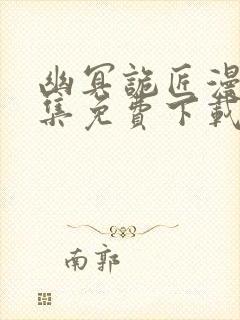 幽冥詭匠漫
集免費下載
南郭